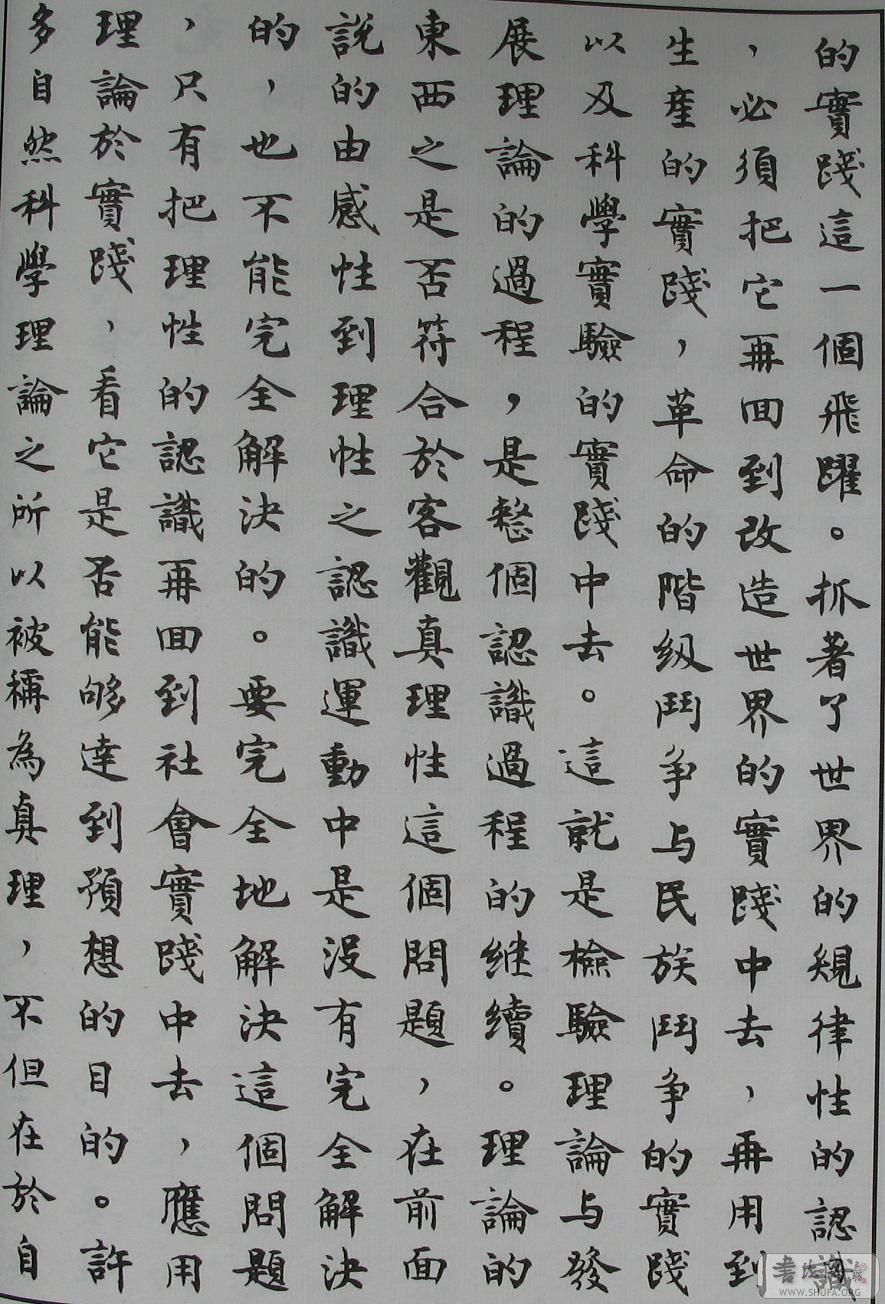 的實踐這一個飛躍。抓著了世界的規律性的認識
，必須把它再回到改造世界的實踐中去，再用到
生産的實踐，革命的階級鬥争与民族鬥争的實踐
以及科學實驗的實踐中去。這就是檢驗理論与發
展理論的過程，是整個認識過程的继續。理論的
東西之是否符合於客觀真理性這個問題，在前面
說的由感性到理性之認識運動中是没有完全解决
的，也不能完全解決的。要完全地解決這個問題
，只有把理性的認識再回到社會實踐中去，應用
理論於實踐，看它是否能够達到預想的目的。許
多自然科學理論之所以被稱為真理，不但在於自
書法網
WWW.SHUFA.ORG